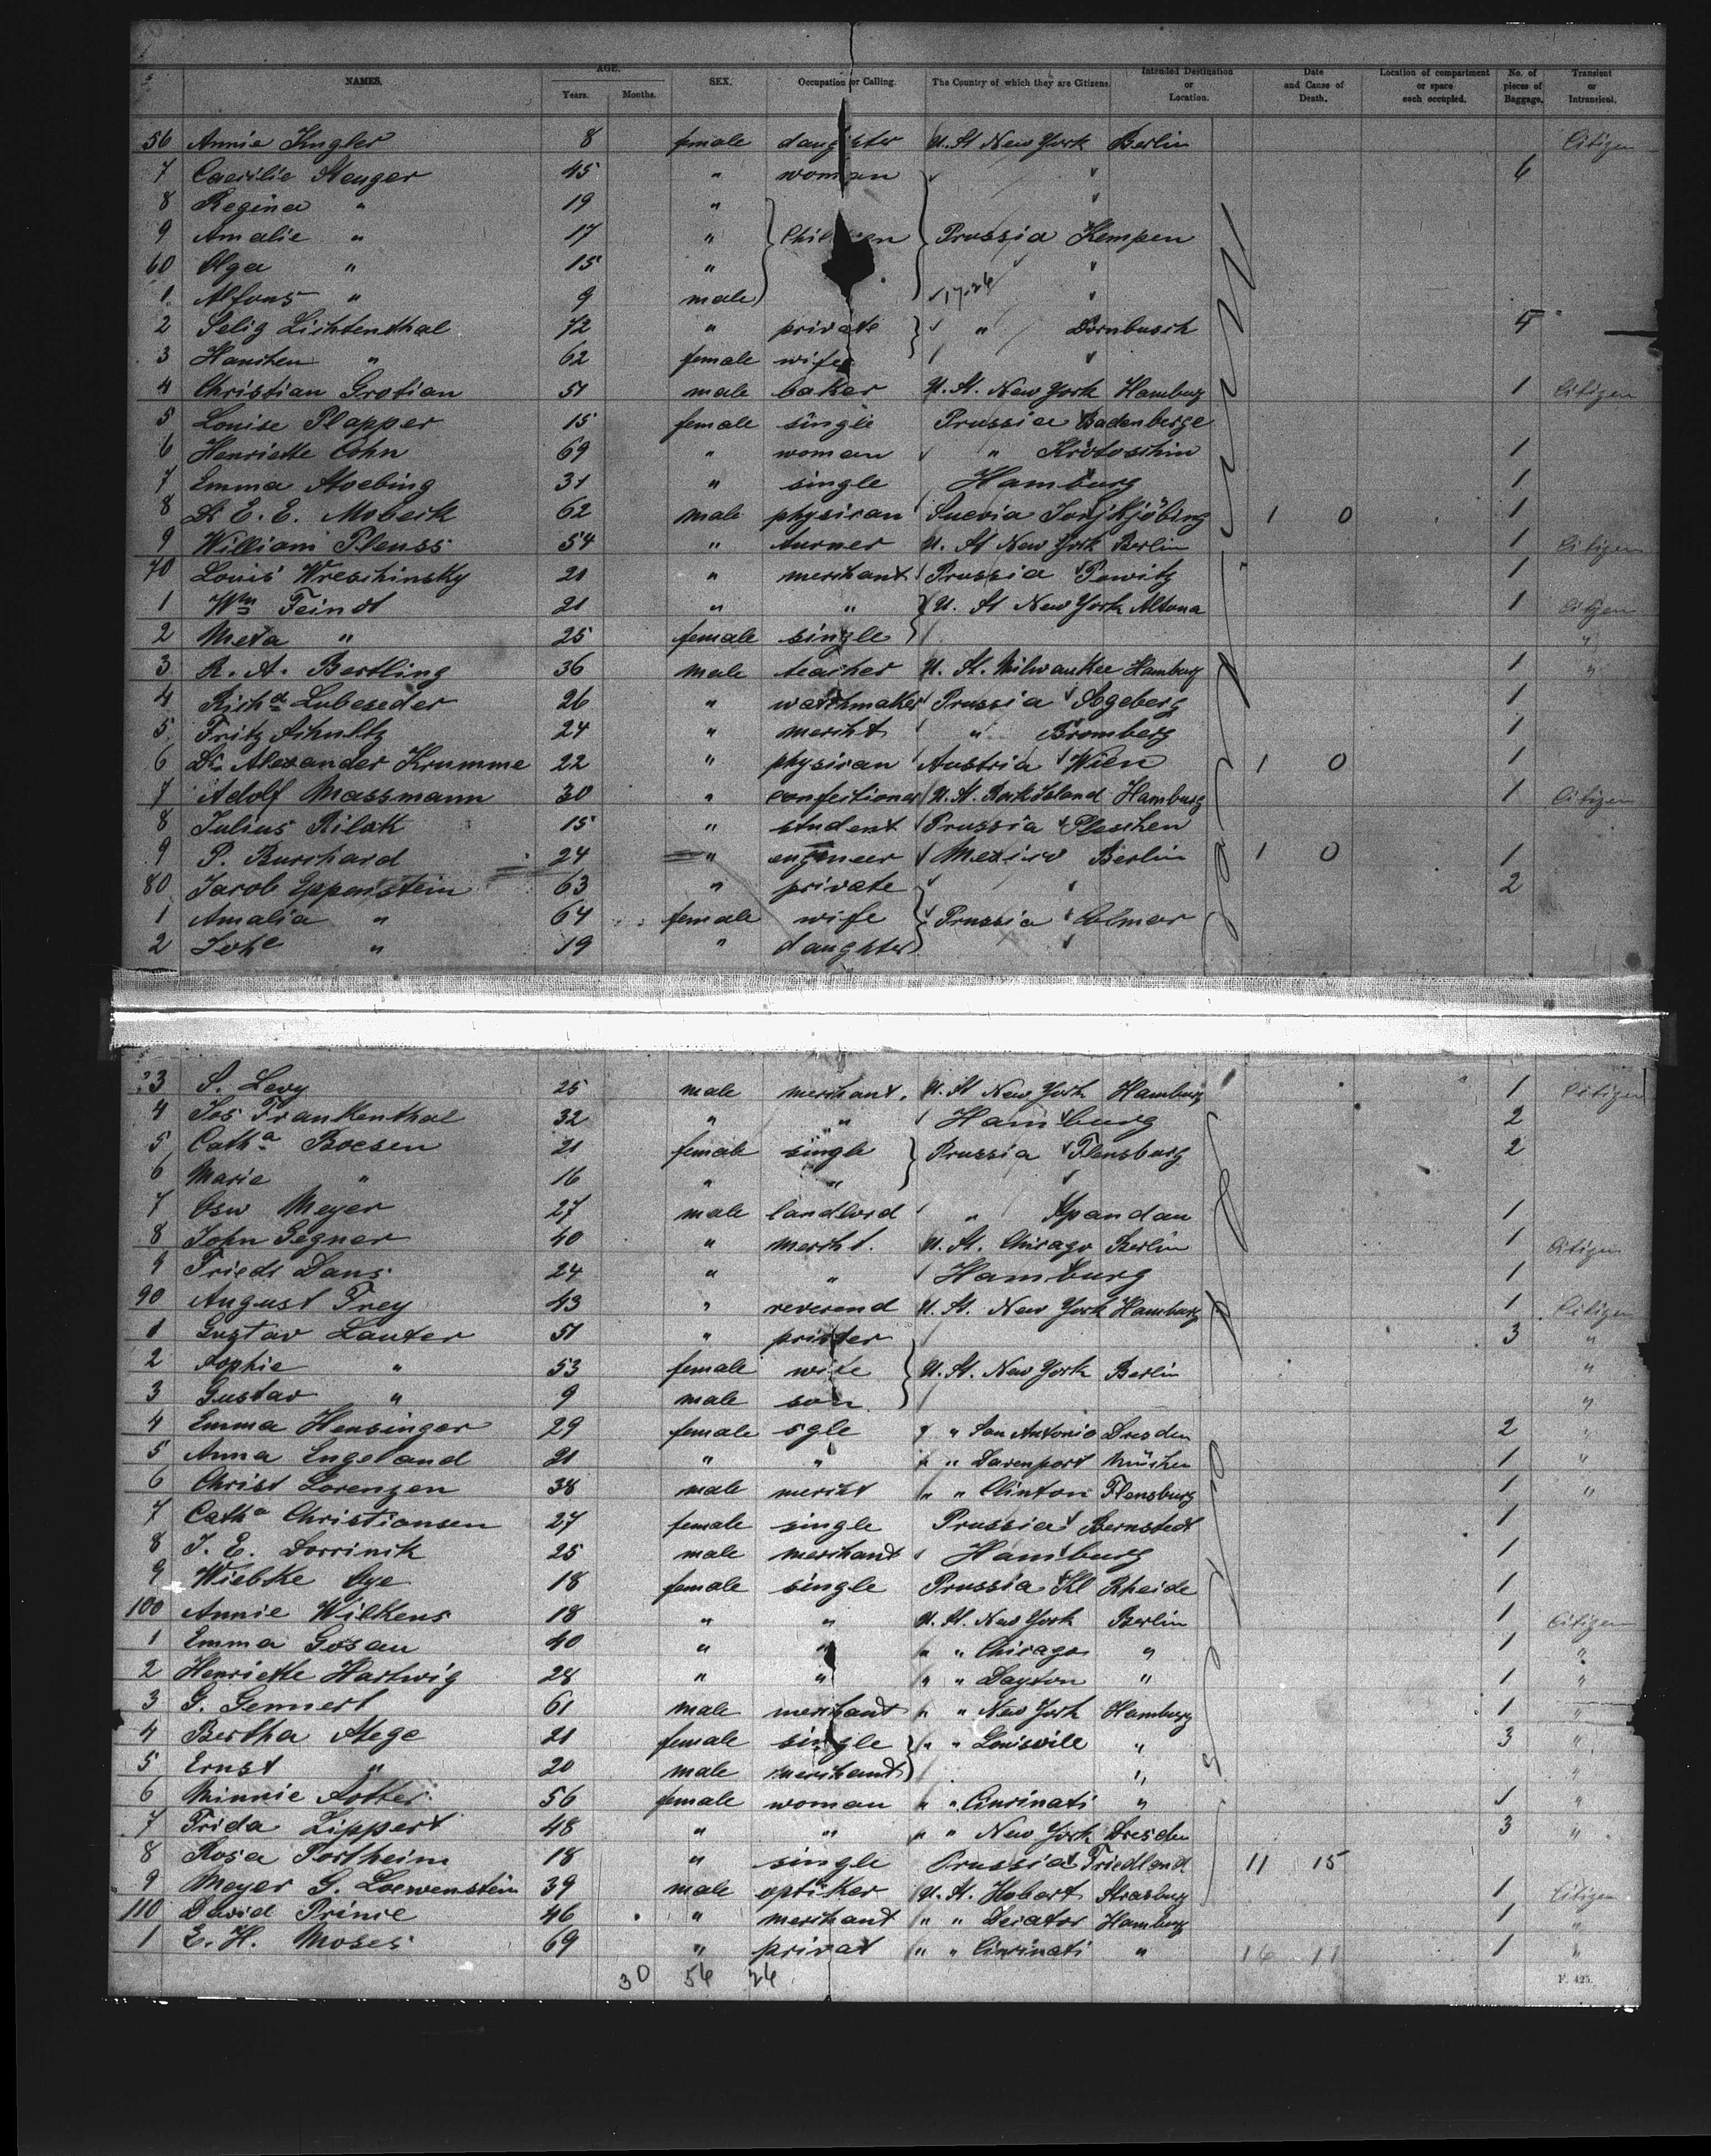 NAMES. AGE. Years. Months. SEX. Occupation or Calling. The Country of which they are Citizens. Intended Destination or Location. Date and Cause of Death. Location of compartment or space each occupied. No. of pieces of Baggage. Transient or Intransient.
56 Annie 8 female daughter U. St New York Berlin Citizen
7 Caecilie 45 " woman 6
8 Regina " 19 "
9 Amalie " 17 " Children Prussia Kempen
60 Olga " 15 "
1 Alfons " 9 male
2 Selig Lichtenthal 72 " private " Dornbusch
3 Hanchen " 62 female wife
4 Christian Grotian 51 male baker U. St. New York Hamburg 1 Citizen
5 Louise Plapper 15 female single Prussia Badenberge
6 Henriette Cohn 69 " woman " Krotoschin 1
7 Emma 31 " single Hamburg 1
8 Dr E. E. Mobeck 62 male physican 1 0 1
9 William Pleuss 54 " turner U. St New York Berlin 1 Citizen
70 Louis Wreschinsky 21 " merchant Prussia Powitz 1
1 Wm Feindt 21 " " U. St New York Altona 1 Citizen
2 Meta " 25 female single "
3 R. A. Bertling 36 male teacher U. St. Milwaukee Hamburg 1 "
4 Richd Lubeseder 26 " watchmaker Prussia 1
5 Fritz Schultz 24 " mercht " Bromberg 1
6 Dr. Alexander Krumme 22 " physican Austria Wien 1 0 1
7 Adolf Massmann 30 " confectioner U. St. Rock Island Hamburg 1 Citizen
8 Julius Rilak 15 " student Prussia Pleschen
9 P. Burchard 24 " engineer Mexico Berlin 1 0 1
80 Jacob Eppenstein 63 " private 2
1 Amalia " 64 female wife Prussia Colmar
2 Johe " 19 " daughter
83 S. Levy 25 male merchant. U. St New York Hamburg 1 Citizen
4 Jos Frankenthal 32 " " Hamburg 2
5 Catha Boesen 21 female single Prussia Flensburg 2
6 Marie " 16 " "
7 Osw Meyer 27 male landlord " Spandau 1
8 John Gegner 40 " mercht. U. St. Chicago Berlin 1 Citizen
9 Friedr Dans 24 " " Hamburg 1
90 August Frey 43 " reverend U. St. New York Hamburg 1 Citizen
1 Gustav Lauter 51 " printer 3 "
2 Sophie " 53 female wife U. St. New York Berlin "
3 Gustav " 9 male son "
4 Emma Hensinger 29 female sgle " " San Antonio Dresden 2 "
5 Anna Engeland 21 " " " " Davenport München 1 "
6 Christ Lorenzen 38 male mercht " " Clinton Flensburg 1 "
7 Catha Christiansen 27 female single Prussia Bernstedt 1
8 J. E. Dorrinck 25 male merchant Hamburg 1
9 Wiebke Aye 18 female single Prussia Kl Rheide 1
100 Annie Wilkens 18 " " U. St. New York Berlin 1 Citizen
1 Emma Gosau 40 " " " " Chicago " 1 "
2 Henriette Hartwig 28 " " " " Dayton " 1 "
3 G. Gennert 61 male merchant " " New York Hamburg 1 "
4 Bertha Stege 21 female single " " Louisville " 3 "
5 Ernst " 20 male merchant " "
6 Minnie 56 female woman " " Cincinati " 1 "
7 Frida Lippert 48 " " " " New York Dresden 3 "
8 Rosa Portheim 18 " single Prussia Friedland 11 15
9 Meyer G. Loewenstein 39 male optiker U. St. Hobart Strasburg 1 Citizen
110 David Prince 46 " merchant " " Decator Hamburg 1 "
1 E. H. Moses 69 " privat " " Cincinati " 16 11 1 "
30 54 26
F. 425.